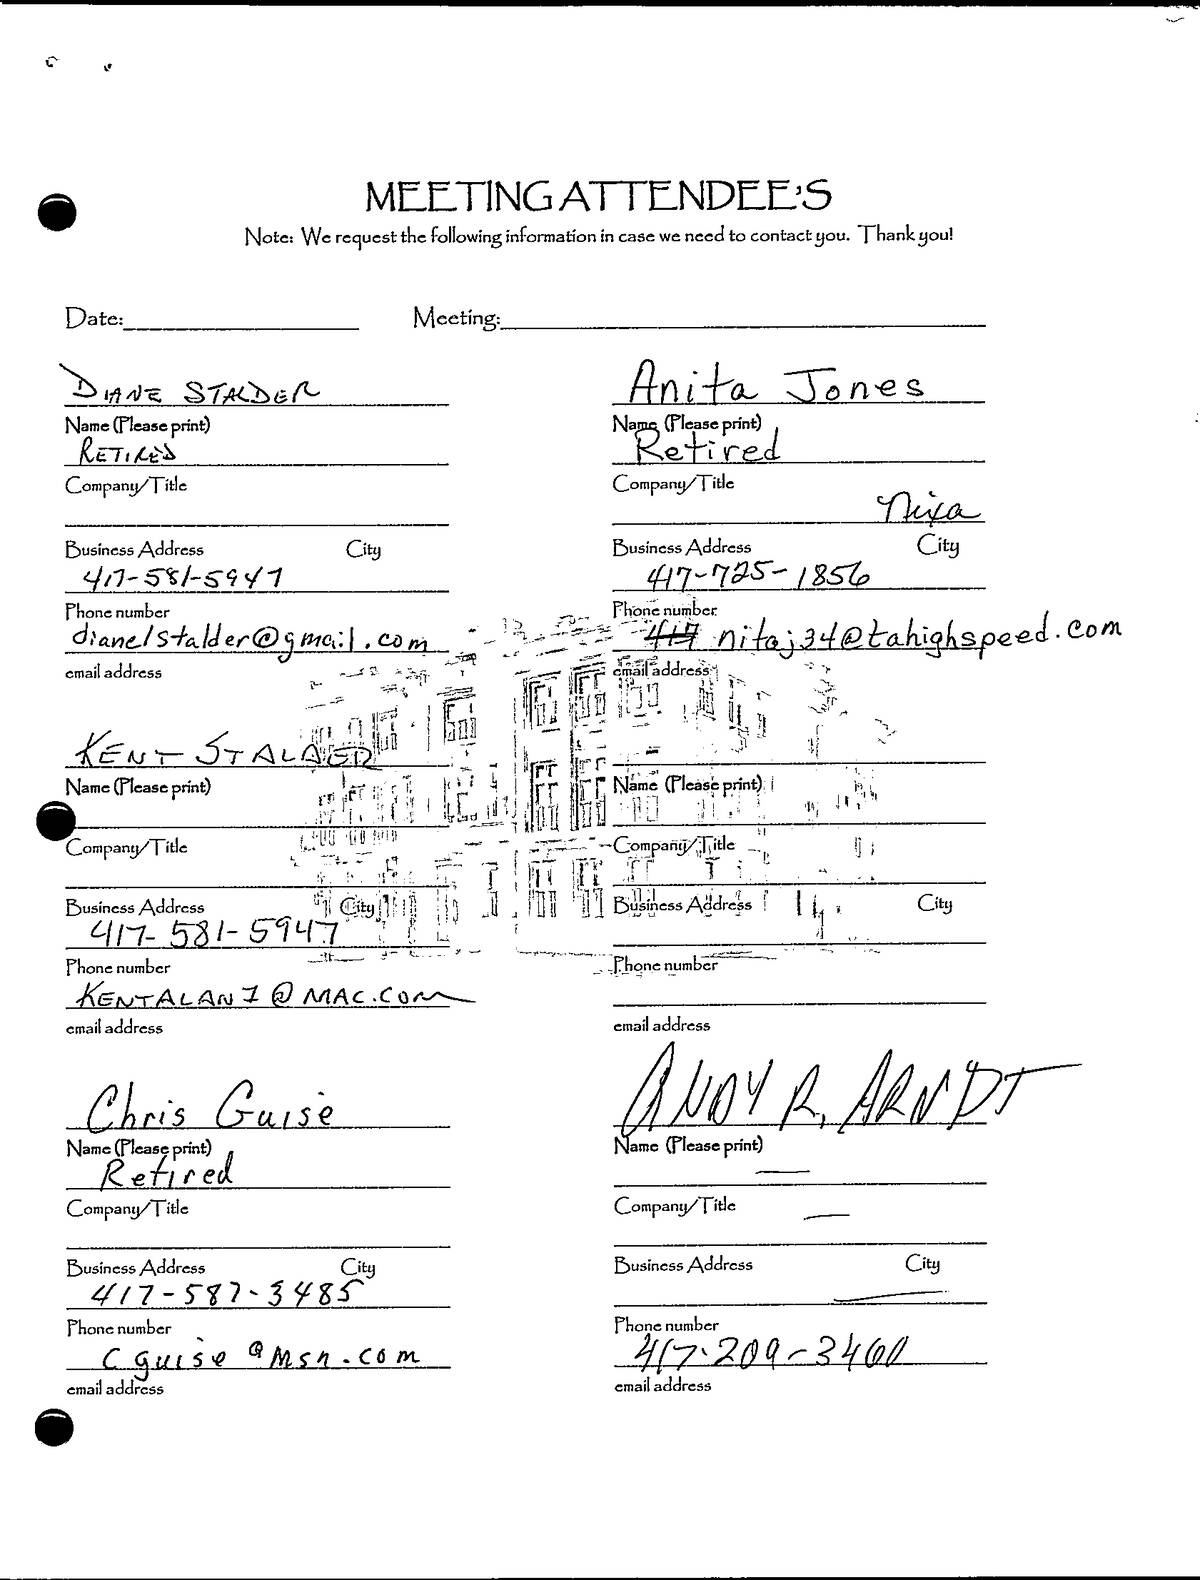 MEETING ATTENDEE'S
Note: We request the following information in case we need to contact you. Thank you!
Date: Meeting:
DIANE STALDER
Name (Please print)
RETIRED
Company/Title
Business Address City
417-581-5947
Phone number
dianelstalder@gmail.com
email address
Anita Jones
Name (Please print)
Retired
Company/Title
Nixa
Business Address City
417-725-1856
Phone number
417 nitaj34@tahighspeed.com
email address
KENT STALDER
Name (Please print)
Company/Title
Business Address City
417-581-5947
Phone number
KENTALAN1@MAC.COM
email address
Name (Please print)
Company/Title
Business Address City
Phone number
email address
Chris Guise
Name (Please print)
Retired
Company/Title
Business Address City
417-587-3485
Phone number
cguise@msn.com
email address
ANDY R. ARNDT
Name (Please print)
Company/Title
Business Address City
Phone number
417-209-3460
email address